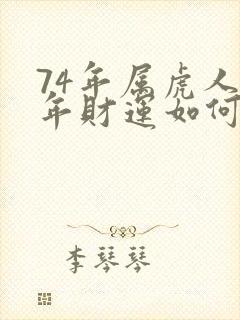 74年属虎人
年财运如何
李琴琴